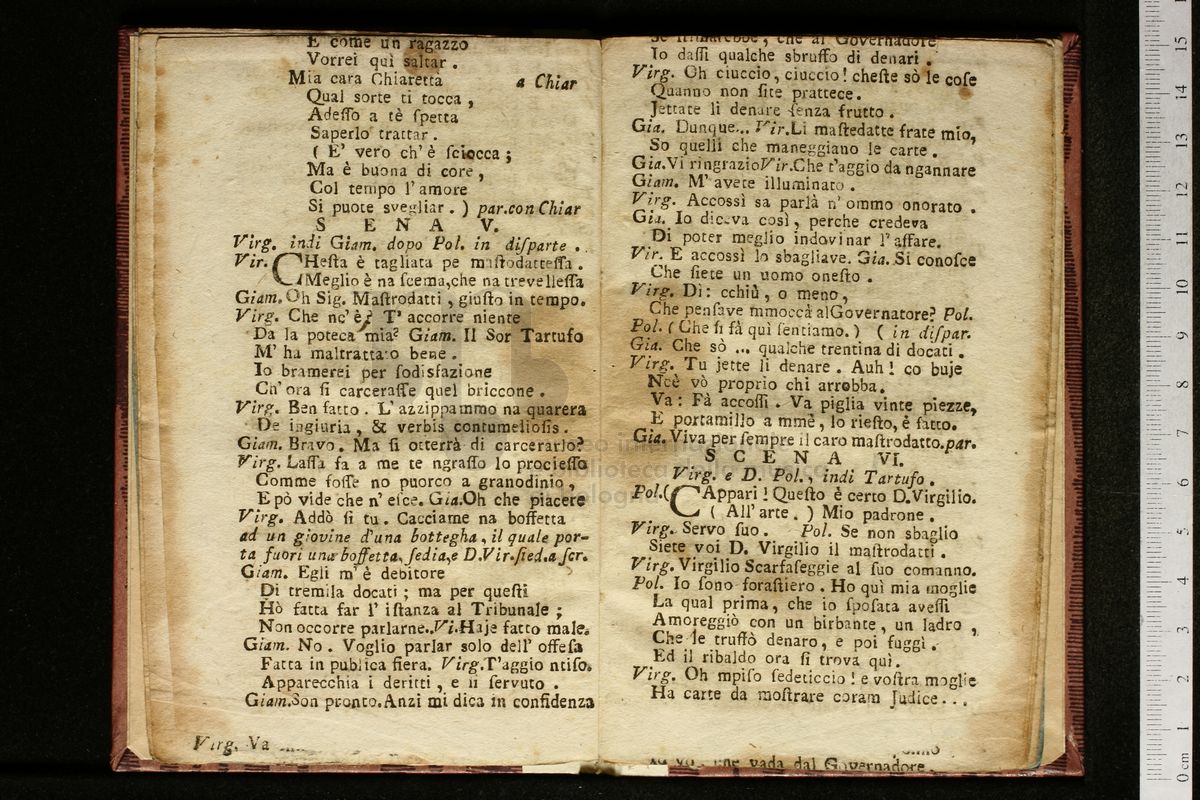 E come un ragazzo
Vorrei quì saltar .
Mia cara Chiaretta a Chiar
Qual sorte ti tocca ,
Adeſſo a tè ſpetta
Saperlo trattar .
( E' vero ch' è ſciocca ;
Ma è buona di core ,
Col tempo l' amore
Si puote svegliar . ) par.con Chiar
S E N A V.
Virg. indi Giam. dopo Pol. in diſparte .
Vir. CHeſta è tagliata pe maſtodatteſſa .
Meglio è na ſcema,che na trevelleſſa
Giam. Oh Sig. Maſtrodatti , giuſto in tempo.
Virg. Che nc' è? T' accorre niente
Da la poteca mia? Giam. Il Sor Tartufo
M' ha maltrattato bene .
Io bramerei per ſodisfazione
Ch' ora ſi carceraſſe quel briccone .
Virg. Ben fatto . L' azzippammo na quarera
De ingiuria , & verbis contumelioſis .
Giam. Bravo . Ma ſi otterrà di carcerarlo?
Virg. Laſſa fa a me te ngraſſo lo procieſſo
Comme foſſe no puorco a granodinio ,
E pò vide che n' eſce. Gia.Oh che piacere
Virg. Addò ſi tu . Cacciame na boffetta
ad un giovine d'una bottegha , il quale por-
ta fuori una boffetta, ſedia,e D.Vir.ſied.a ſcr.
Giam. Egli m' è debitore
Di tremila docati ; ma per queſti
Hò fatta far l' iſtanza al Tribunale ;
Non occorre parlarne..Vi.Haje fatto male.
Giam. No . Voglio parlar solo dell' offeſa
Fatta in publica fiera. Virg.T'aggio ntiſo.
Apparecchia i deritti , e ſi ſervuto .
Giam.Son pronto.Anzi mi dica in confidenza
Virg. Va
che al Governadore
Io daſſi qualche sbruffo di denari .
Virg. Oh ciuccio , ciuccio ! cheſte sò le coſe
Quanno non ſite prattece.
Jettate li denare ſenza frutto .
Gia. Dunque... Vir.Li maſtedatte frate mio,
So quelli che maneggiano le carte .
Gia.Vi ringrazioVir.Che t'aggio da ngannare
Giam. M' avete illuminato .
Virg. Accossì sa parlà n' ommo onorato .
Gia. Io diceva così , perche credeva
Di poter meglio indovinar l' affare.
Vir. E accossì lo sbagliave. Gia.Si conoſce
Che ſiete un uomo oneſto .
Virg. Dì : cchiù , o meno ,
Che penſave mmoccà alGovernatore? Pol.
Pol. ( Che ſi fà quì ſentiamo. ) ( in diſpar.
Gia. Che sò ... qualche trentina di docati .
Virg. Tu jette li denare . Auh ! co buje
Ncè vò proprio chi arrobba.
Va : Fà accoſſì . Va piglia vinte piezze,
E portamillo a mmè , lo rieſto, è fatto.
Gia. Viva per ſempre il caro maſtrodatto.par.
S C E N A VI.
Virg. e D. Pol. , indi Tartufo .
Pol.( CAppari ! Queſto è certo D.Virgilio.
( All' arte . ) Mio padrone .
Virg. Servo ſuo . Pol. Se non sbaglio
Siete voi D. Virgilio il maſtrodatti .
Virg. Virgilio Scarfaſeggie al ſuo comanno.
Pol. Io ſono foraſtiero . Ho quì mia moglie
La qual prima , che io ſpoſata aveſſi
Amoreggiò con un birbante , un ladro ,
Che le truffò denaro , e poi fuggì .
Ed il ribaldo ora ſi trova quì .
Virg. Oh mpiſo ſedeticcio ! e voſtra moglie
Ha carte da moſtrare coram Judice . . .
che vada dal Governadore